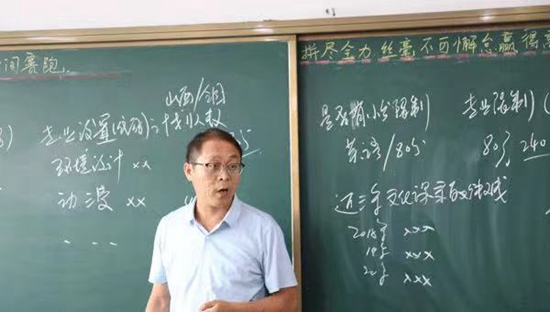 间赛跑,,,
拼尽全力 丝毫不可懈怠赢得
山西/全国
专业设置(方向) 计划人数
环境设计 xx
动漫 xx
...
是否有小分限制 专业限制
英语/80分 80分 240
近三年文化课录取分数线
2018年 xxx
19年 xxx
20年 xxx